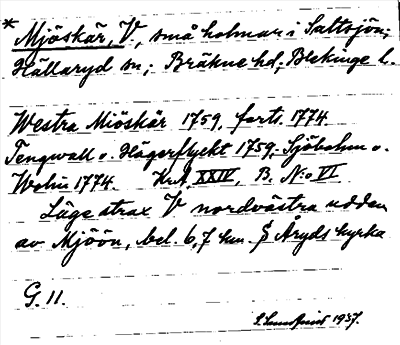 * Mjöskär, V, små holmar i Saltsjön;
Hällaryd sn; Bräkne hd; Blekinge l.
Westra Miöskär 1759, forts. 1774
Tengwall o. Hägerflyckt 1759; Sjöbohm o.
Wolin 1774. KrA XXIV, B, N:o VI
Läge strax V nordvästra udden
av Mjöön, bel. 6,7 km. S Åryds kyrka
G. 11.
1937.